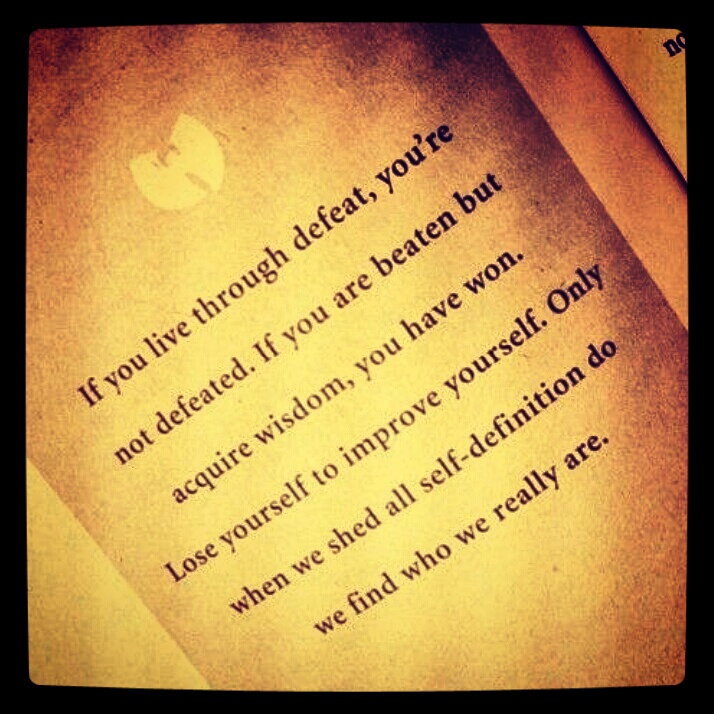 no
If you live through defeat, you're
not defeated. If you are beaten but
acquire wisdom, you have won.
Lose yourself to improve yourself. Only
when we shed all self-definition do
we find who we really are.